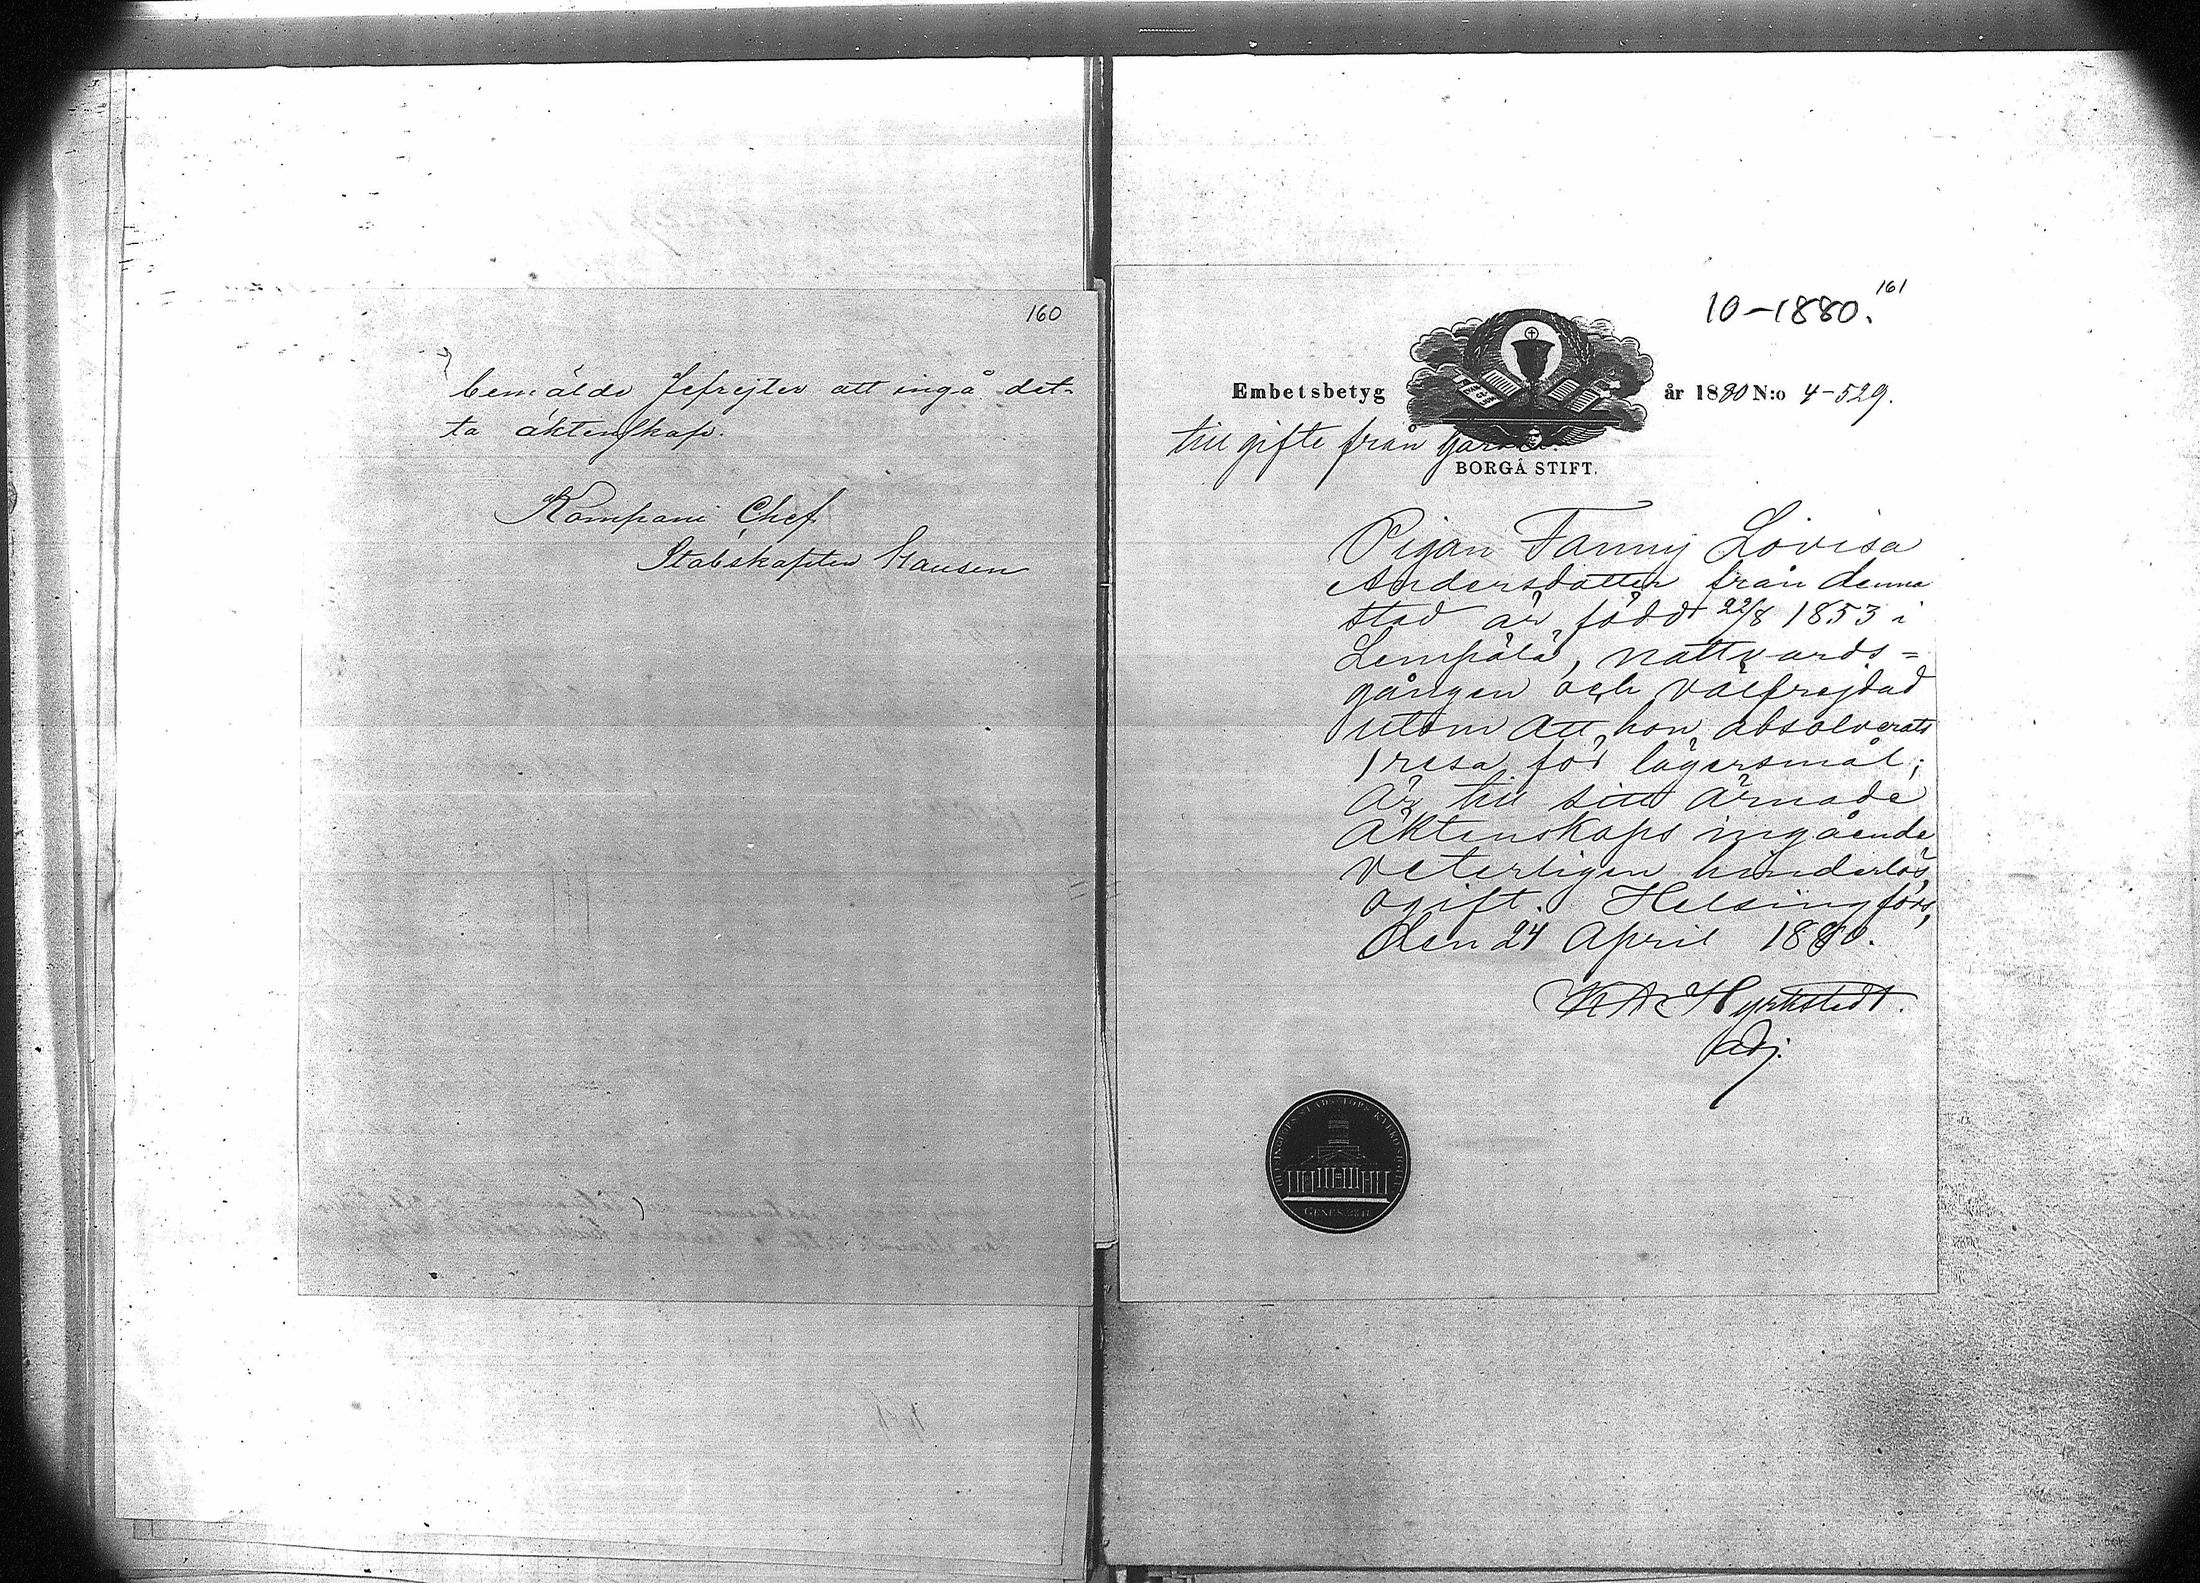 160
bemälde Gefrejter att ingå det-
ta äktenskap.
Kompani Chef
Stabskapten Hausen
161
10-1880.
Embetsbetyg år 1880 N:o 4-529.
till gifte från
BORGÅ STIFT.
Pigan Fanny Lovisa
Andersdotter från denna
stad är född 22/8 1853 i
Lempälä, nattvards=
gången och välfrejdad
utom att hon absolverats
1 resa för lägersmål;
Är till sitt ärnade
äktenskaps ingående
veterligen hinderlös,
ogift. Helsingfors,
den 24 April 1880.
K A Hyrkstedt.
adj.